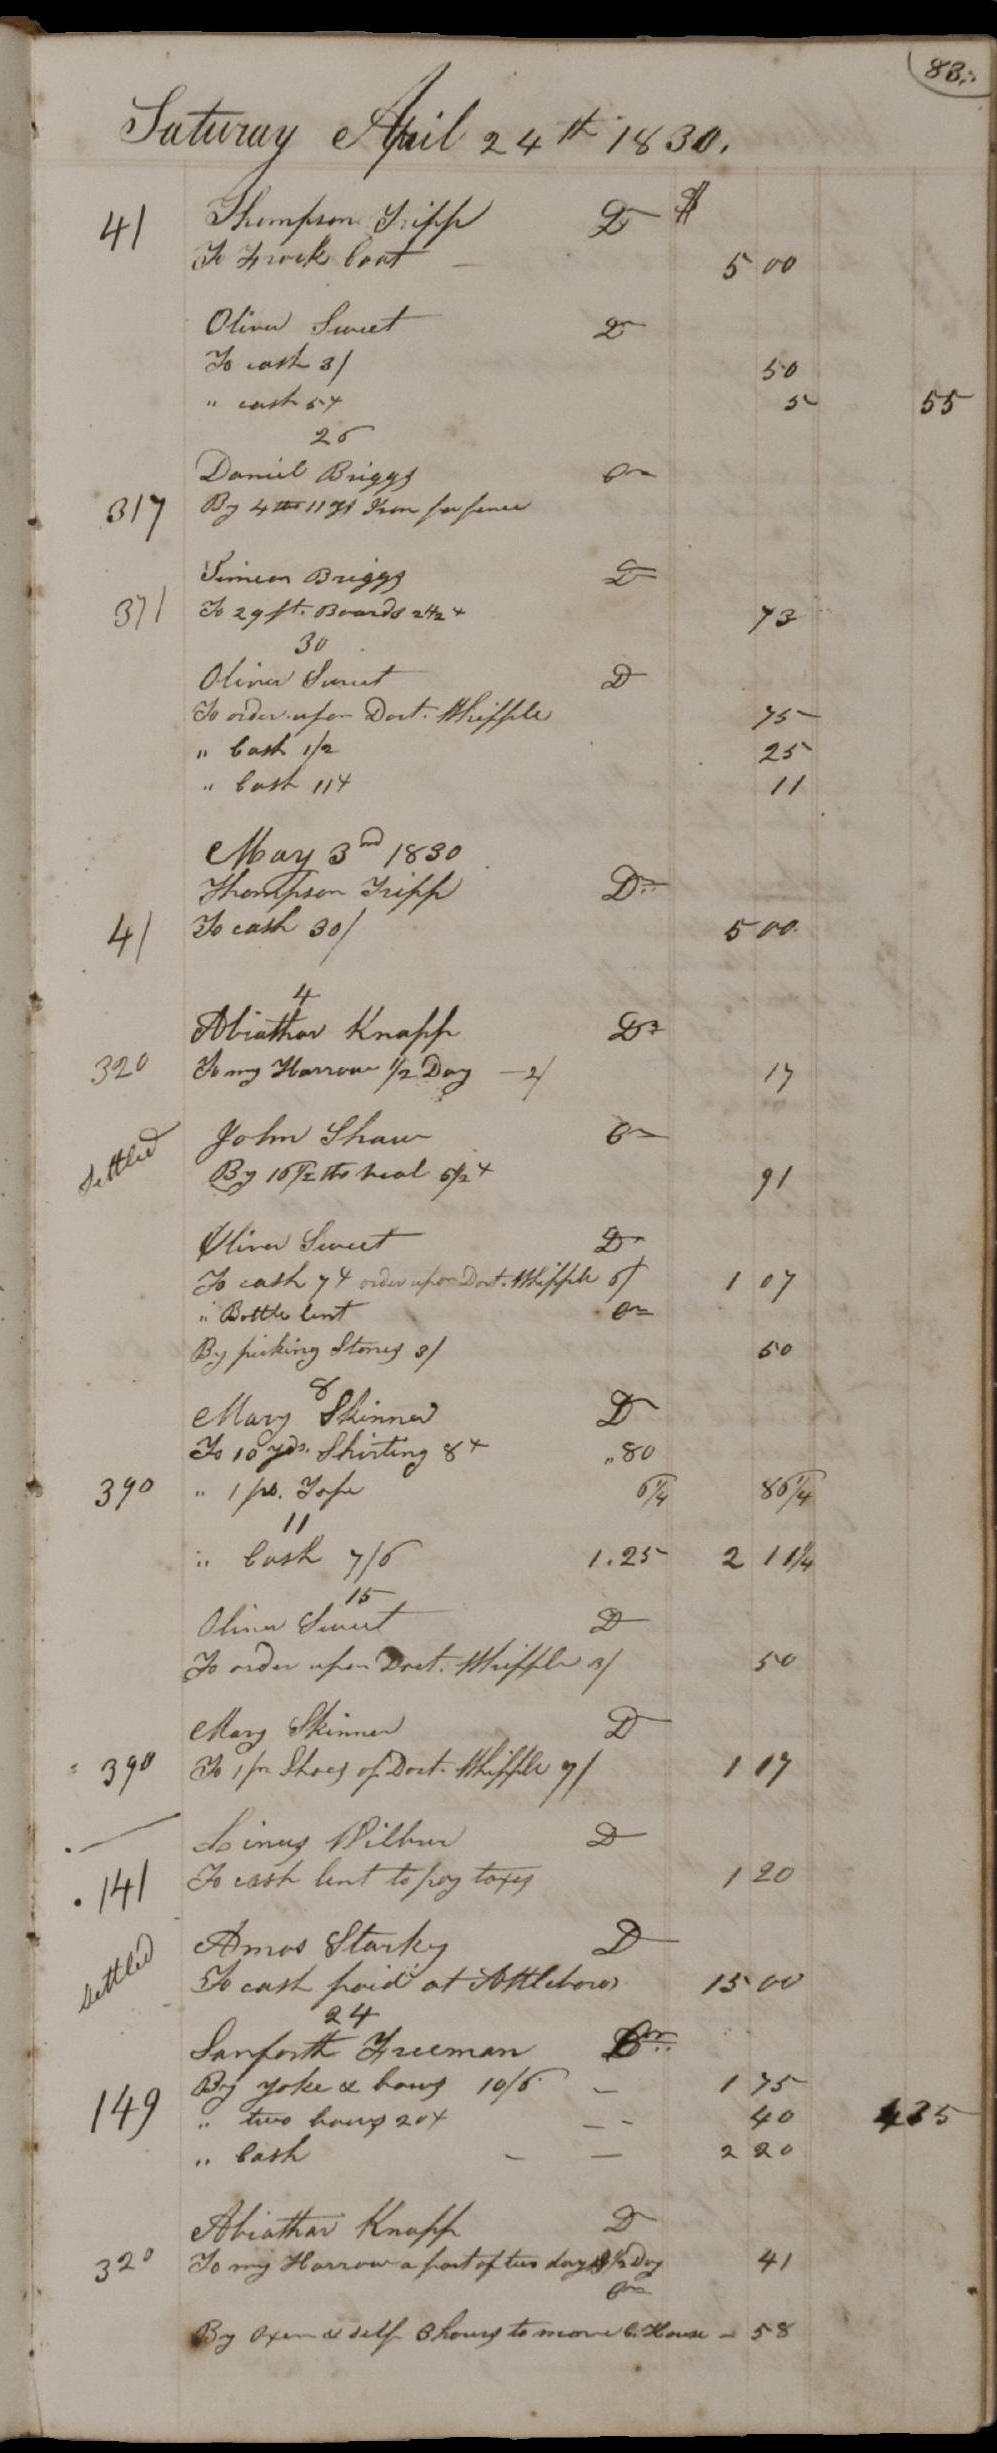 83
Saturay April 24th 1830.
41 Thompson Tripp Dr $
To Frock Coat — 5 00
Oliver Sweet Dr
To cash 3/ 50
" cash 5+ 5 55
26
Daniel Briggs Cr
317 By 4 lbs 11 Iron for fence
Simeon Briggs Dr
371 To 29 ft. Boards 2 1/2 + 73
30
Oliver Sweet Dr
To order upon Doct. Whipple 75
" Cash 1/2 25
" Cash 11+ 11
May 3nd 1830
Thompson Tripp Dr
41 To cash 30/ 5 00
4
Abiathar Knapp Dr
320 To my Harrow 1/2 Day — 2/ 17
Settled John Shaw Cr
By 16 1/2 lbs veal 5 1/2 + 91
Oliver Sweet Dr
To cash 7+ order upon Doct. Whipple 6/ 1 07
" Bottle lent Cr
By picking Stones 3/ 50
8
Mary Skinner Dr
To 10 yds. Shirting 8+ " 80
390 " 1 ps. Tape 6 1/4 86 1/4
11
" Cash 7/6 1.25 2 11 1/4
15
Oliver Sweet Dr
To order upon Doct. Whipple 3/ 50
Mary Skinner Dr
390 To 1 pr Shoes of Doct. Whipple 7/ 1 17
Linus Wilbur Dr
141 To cash lent to pay taxes 1 20
Settled Amos Starky Dr
To cash paid at Attleboro 15 00
24
Sanforth Freeman Cr
By yoke & bows 10/6 — 1 75
149 " two bows 20+ — - 40 4 35
" Cash - — 2 20
Abiathar Knapp Dr
320 To my Harrow a part of two days 1/2 Day 41
Cr
By Oxen & self 3 hours to move C. House — 58